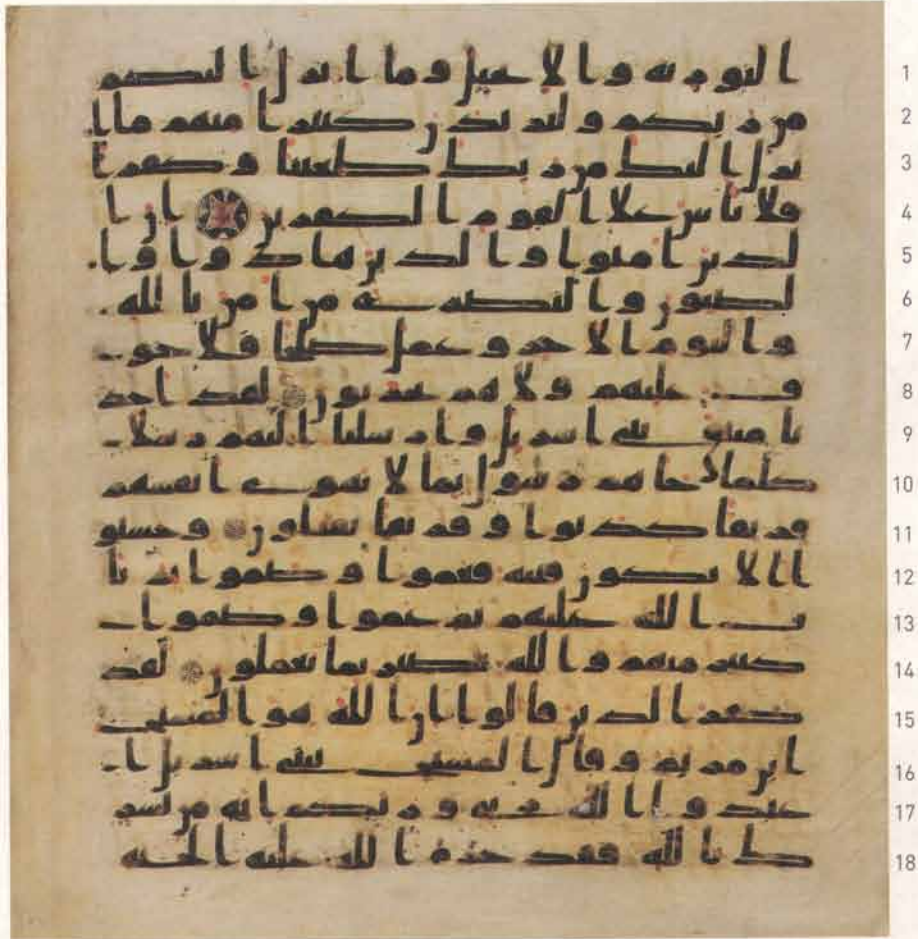 التوريه والانجيل وما انزل اليكم 1
من ربكم وليزيدن كثيرا منهم ما ا 2
نزل اليك من ربك طغينا وكفرا 3
فلا تاس علا القوم الكفرين ان ا 4
لذين امنوا والذين هادوا وا 5
لصبون والنصرى من امن بالله 6
واليوم الاخر وعمل صلحا فلا خو 7
ف عليهم ولا هم يحزنون لقد اخذ 8
نا ميثق بني اسريل وارسلنا اليهم رسلا 9
كلما جاهم رسول بما لا تهوى انفسهم 10
فريقا كذبوا وفريقا يقتلون وحسبو 11
ا الا تكون فتنه فعموا وصموا ثم تا 12
ب الله عليهم ثم عموا وصموا 13
كثير منهم والله بصير بما يعملون لقد 14
كفر الذين قالوا ان الله هو المسيح 15
ابن مريم وقال المسيح يبني اسريل ا 16
عبدوا الله ربي وربكم انه من يشر 17
ك بالله فقد حرم الله عليه الجنه 18